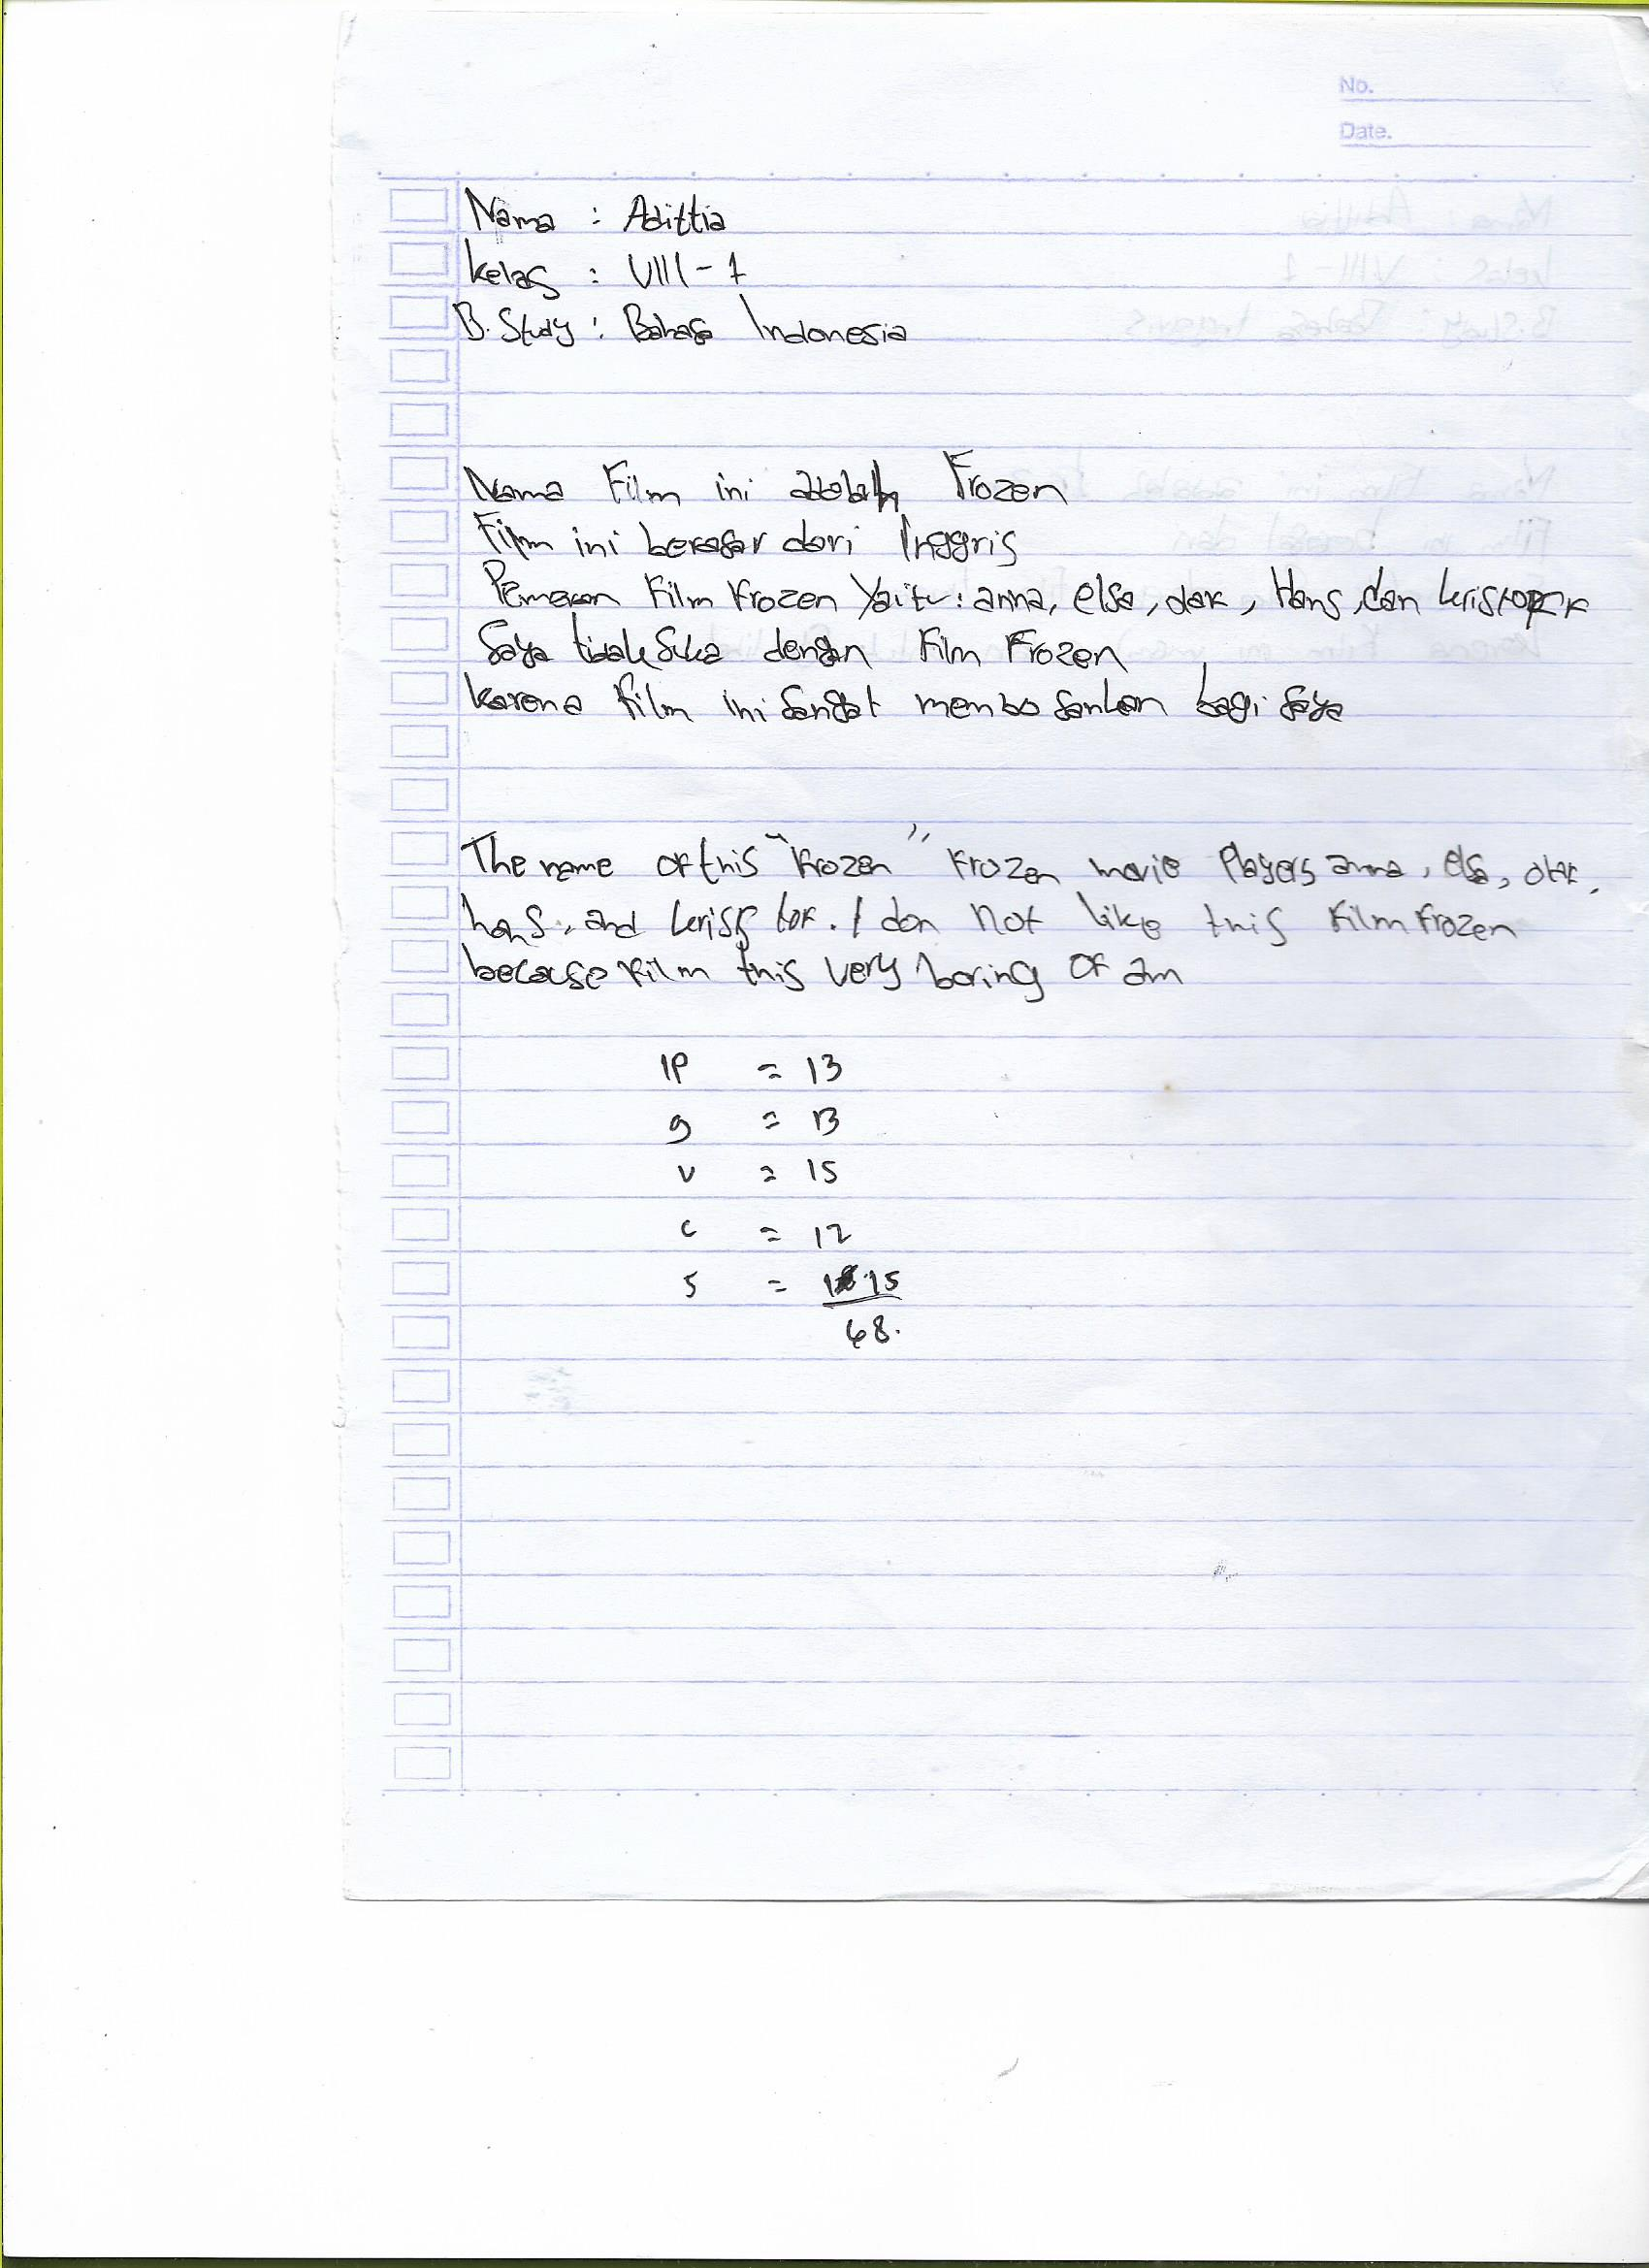 No.
Date.
Nama : Adittia
kelas : VIII - 1
B. Study : Bahasa Indonesia
Nama Film ini adalah Frozen
Film ini berasar dari Inggris
Pemeran Film Frozen Yaitu : anna, elsa, olaf, Hans, dan kristopf
Saya tidak suka dengan Film Frozen
karena film ini sangat membosankan bagi saya
The name of this "Frozen" Frozen movie Players anna, elsa, olaf,
hans, and . I don Not like this Film Frozen
because film this very boring of am
IP = 13
g = 13
v = 15
c = 12
S = 15
68.